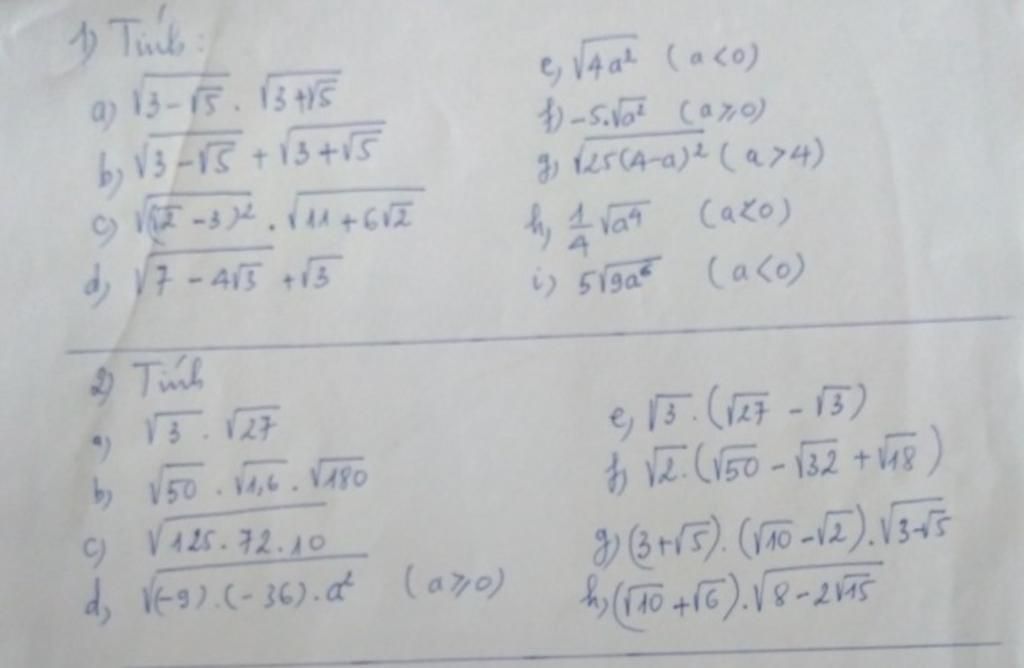 1) Tính:
a) √(3-√5) . √(3+√5)
b) √(3-√5) + √(3+√5)
c) √((√2-3)²) . √(11+6√2)
d) √(7-4√3) + √3
e) √(4a²) (a<0)
f) -5.√(a²) (a≥0)
g) √(25(4-a)²) (a>4)
h) 1/4 √(a⁴) (a<0)
i) 5√(9a⁶) (a<0)
2) Tính
a) √3 . √27
b) √50 . √1,6 . √180
c) √(125.72.10)
d) √((-9).(-36).a²) (a≥0)
e) √3.(√27-√3)
f) √2.(√50-√32+√18)
g) (3+√5).(√10-√2).√(3-√5)
h) (√10+√6).√(8-2√15)